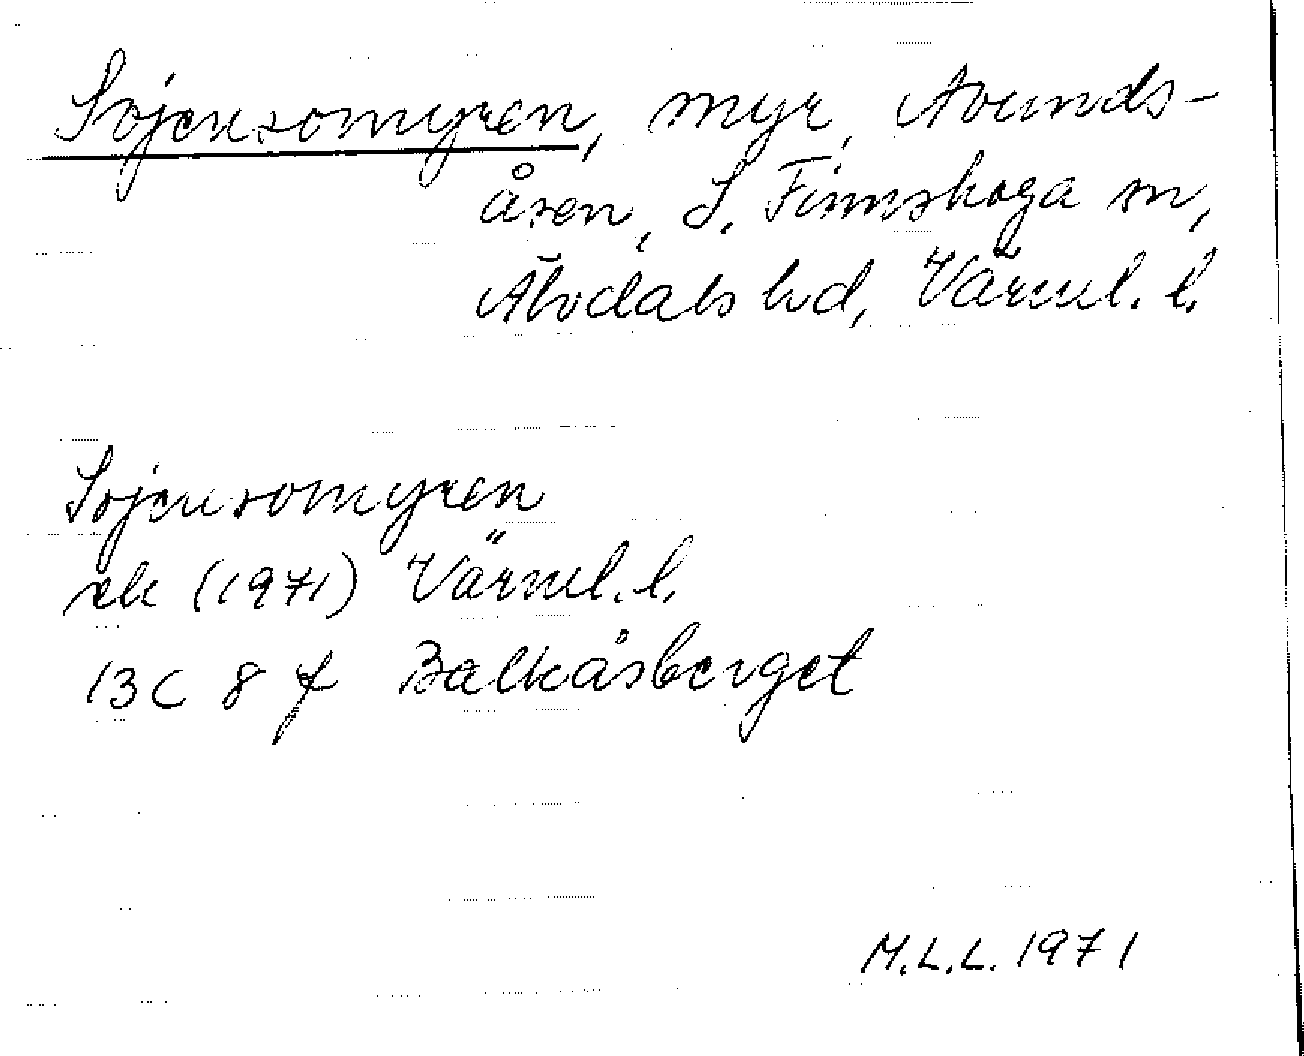 Svjensomyren, myr, Avunds-
åsen, S. Finnskoga sn,
Älvdals hd, Värml. l.
Svjensomyren
ek (1971) Värml. l.
13 C 8 f Balkåsberget
M.L.L. 1971